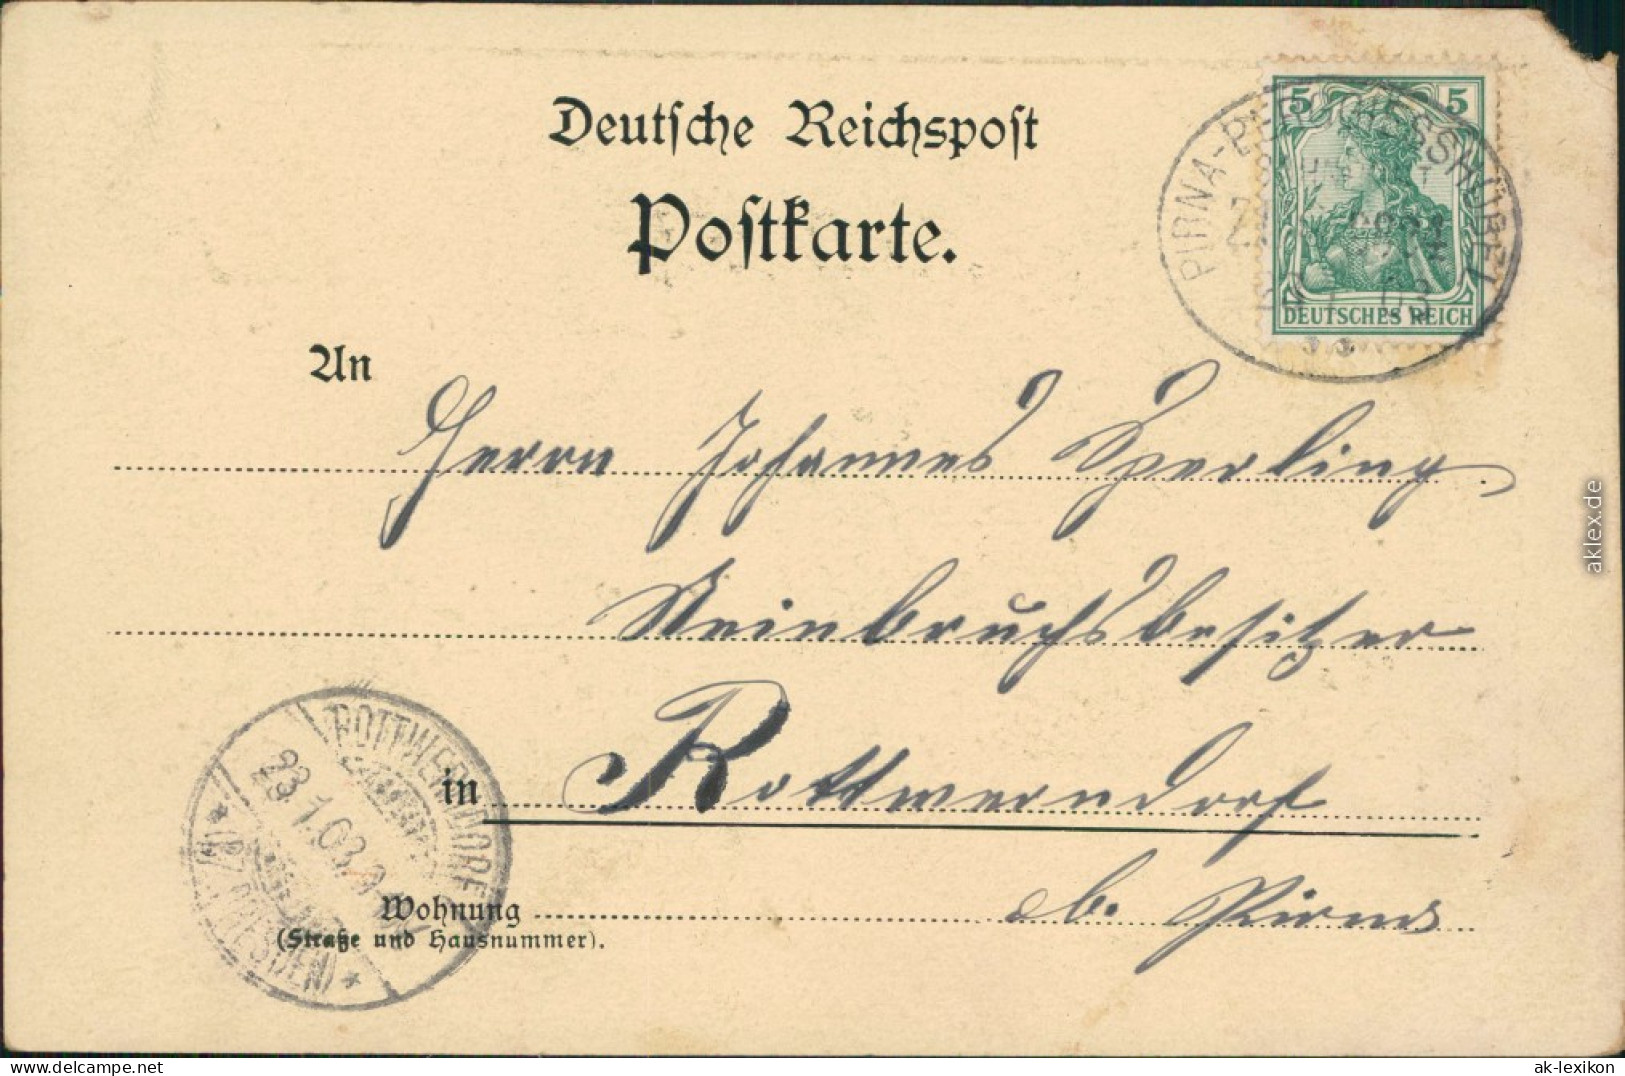 Deutsche Reichspost
Postkarte.
5 5
DEUTSCHES REICH
PIRNA-
03
An
Herrn Johannes Sperling
Steinbruchsbesitzer
in Rottwerndorf
b. Pirna
Wohnung
(Straße und Hausnummer).
ROTTWERNDORF
23.1.03.
(BZ. DRESDEN)
aklex.de
ak-lexikon